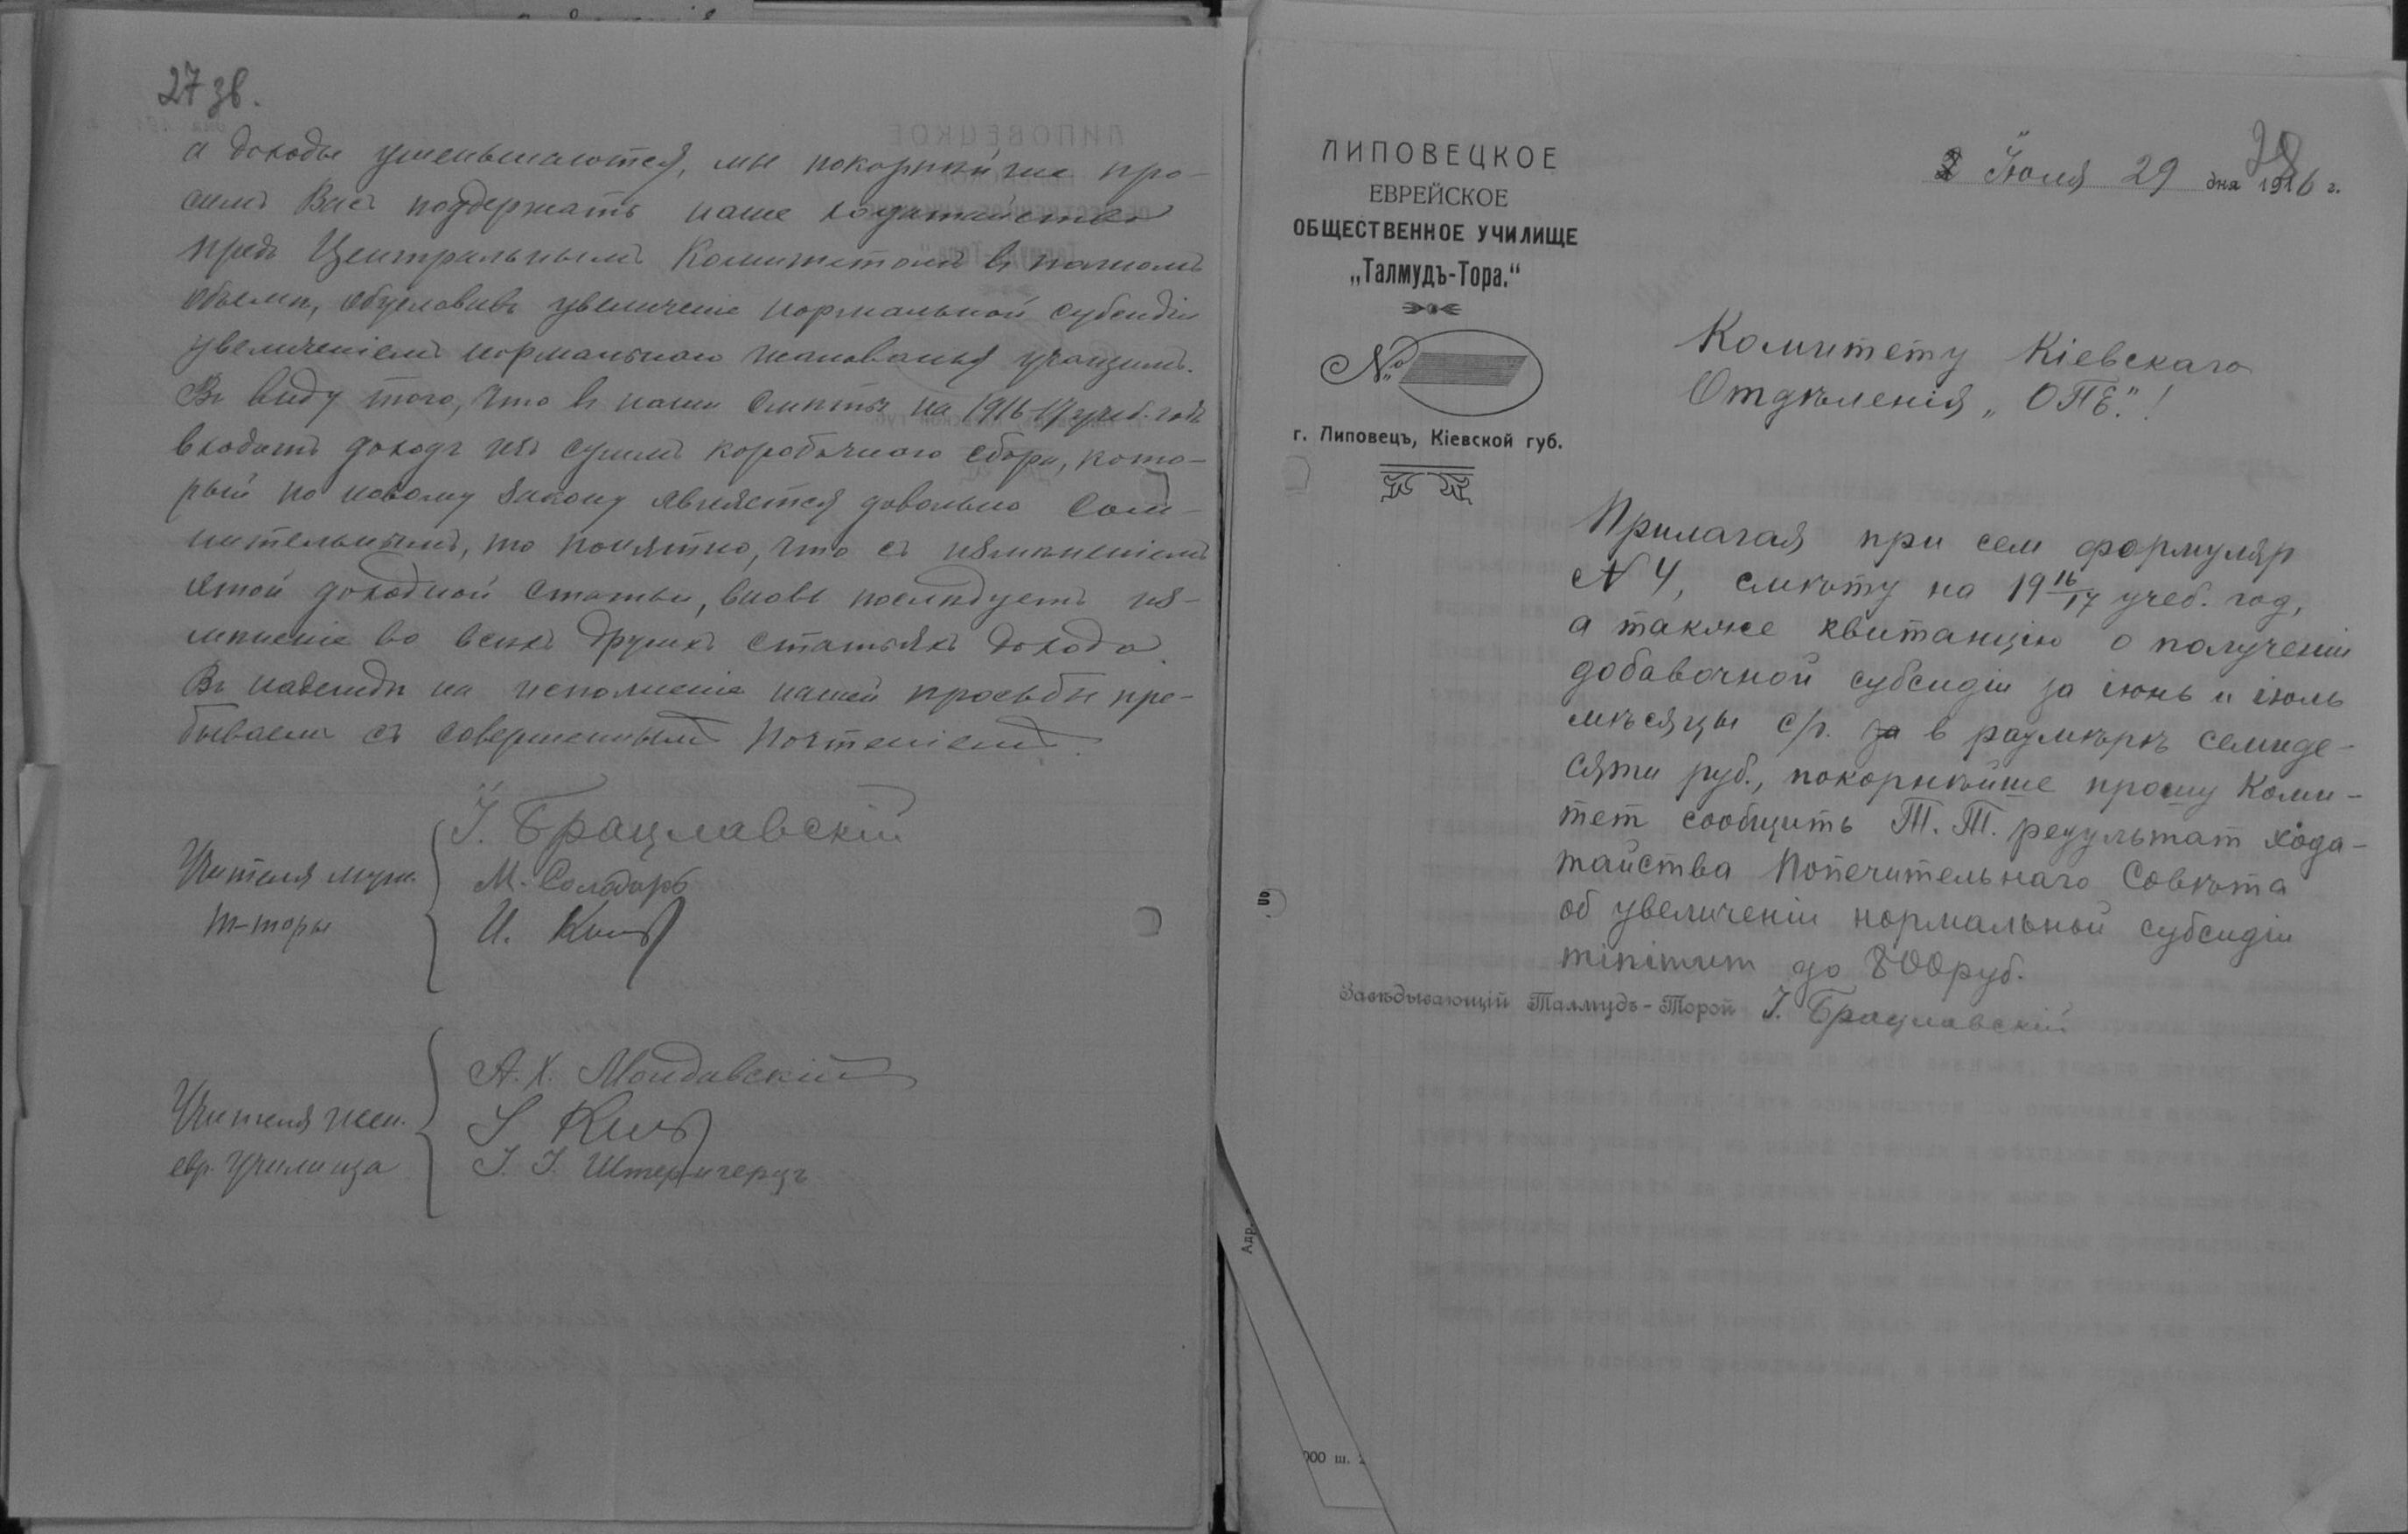 27 зв.
а доходы уменьшаются, мы покорнѣйше про-
симъ Васъ поддержать наше ходатайство
предъ Центральнымъ Комитетомъ въ полномъ
объемѣ, обусловивъ увеличеніе нормальной субсидіи
увеличеніемъ нормальнаго жалованья учащимъ.
Въ виду того, что въ нашей смѣтѣ на 1916-17 учеб. годъ
входитъ доходъ изъ суммъ коробочнаго сбора, кото-
рый по новому закону является довольно сом-
нительнымъ, то понятно, что съ измѣненіемъ
этой доходной статьи, вновь послѣдуетъ из-
мѣненіе во всѣхъ другихъ статьяхъ дохода.
Въ надеждѣ на исполненіе нашей просьбы пре-
бываемъ съ совершеннымъ почтеніемъ.
Учителя муж.
Т-торы
І. Брацлавскій
М. Солодарь
И.
Учителя жен.
евр. училища
А. Х. Молдавскій
І. І. Штернгерцъ
28
ЛИПОВЕЦКОЕ
ЕВРЕЙСКОЕ
ОБЩЕСТВЕННОЕ УЧИЛИЩЕ
„Талмудъ-Тора."
№
г. Липовецъ, Кіевской губ.
Іюля 29 дня 1916 г.
Комитету Кіевскаго
Отдѣленія „ОПЕ."!
Прилагая при сем формуляр
N 4, смѣту на 19 16/17 учеб. год,
а также квитанцію о полученіи
добавочной субсидіи за іюнь и іюль
мѣсяцы с/г. за в размѣрѣ семиде-
сяти руб., покорнѣйше прошу Коми-
тет сообщить Т. Т. результат хода-
тайства Попечительнаго Совѣта
об увеличеніи нормальной субсидіи
minimum до 800 руб.
Завѣдывающій Талмудъ-Торой І. Брацлавскій
Адр.
000 ш.